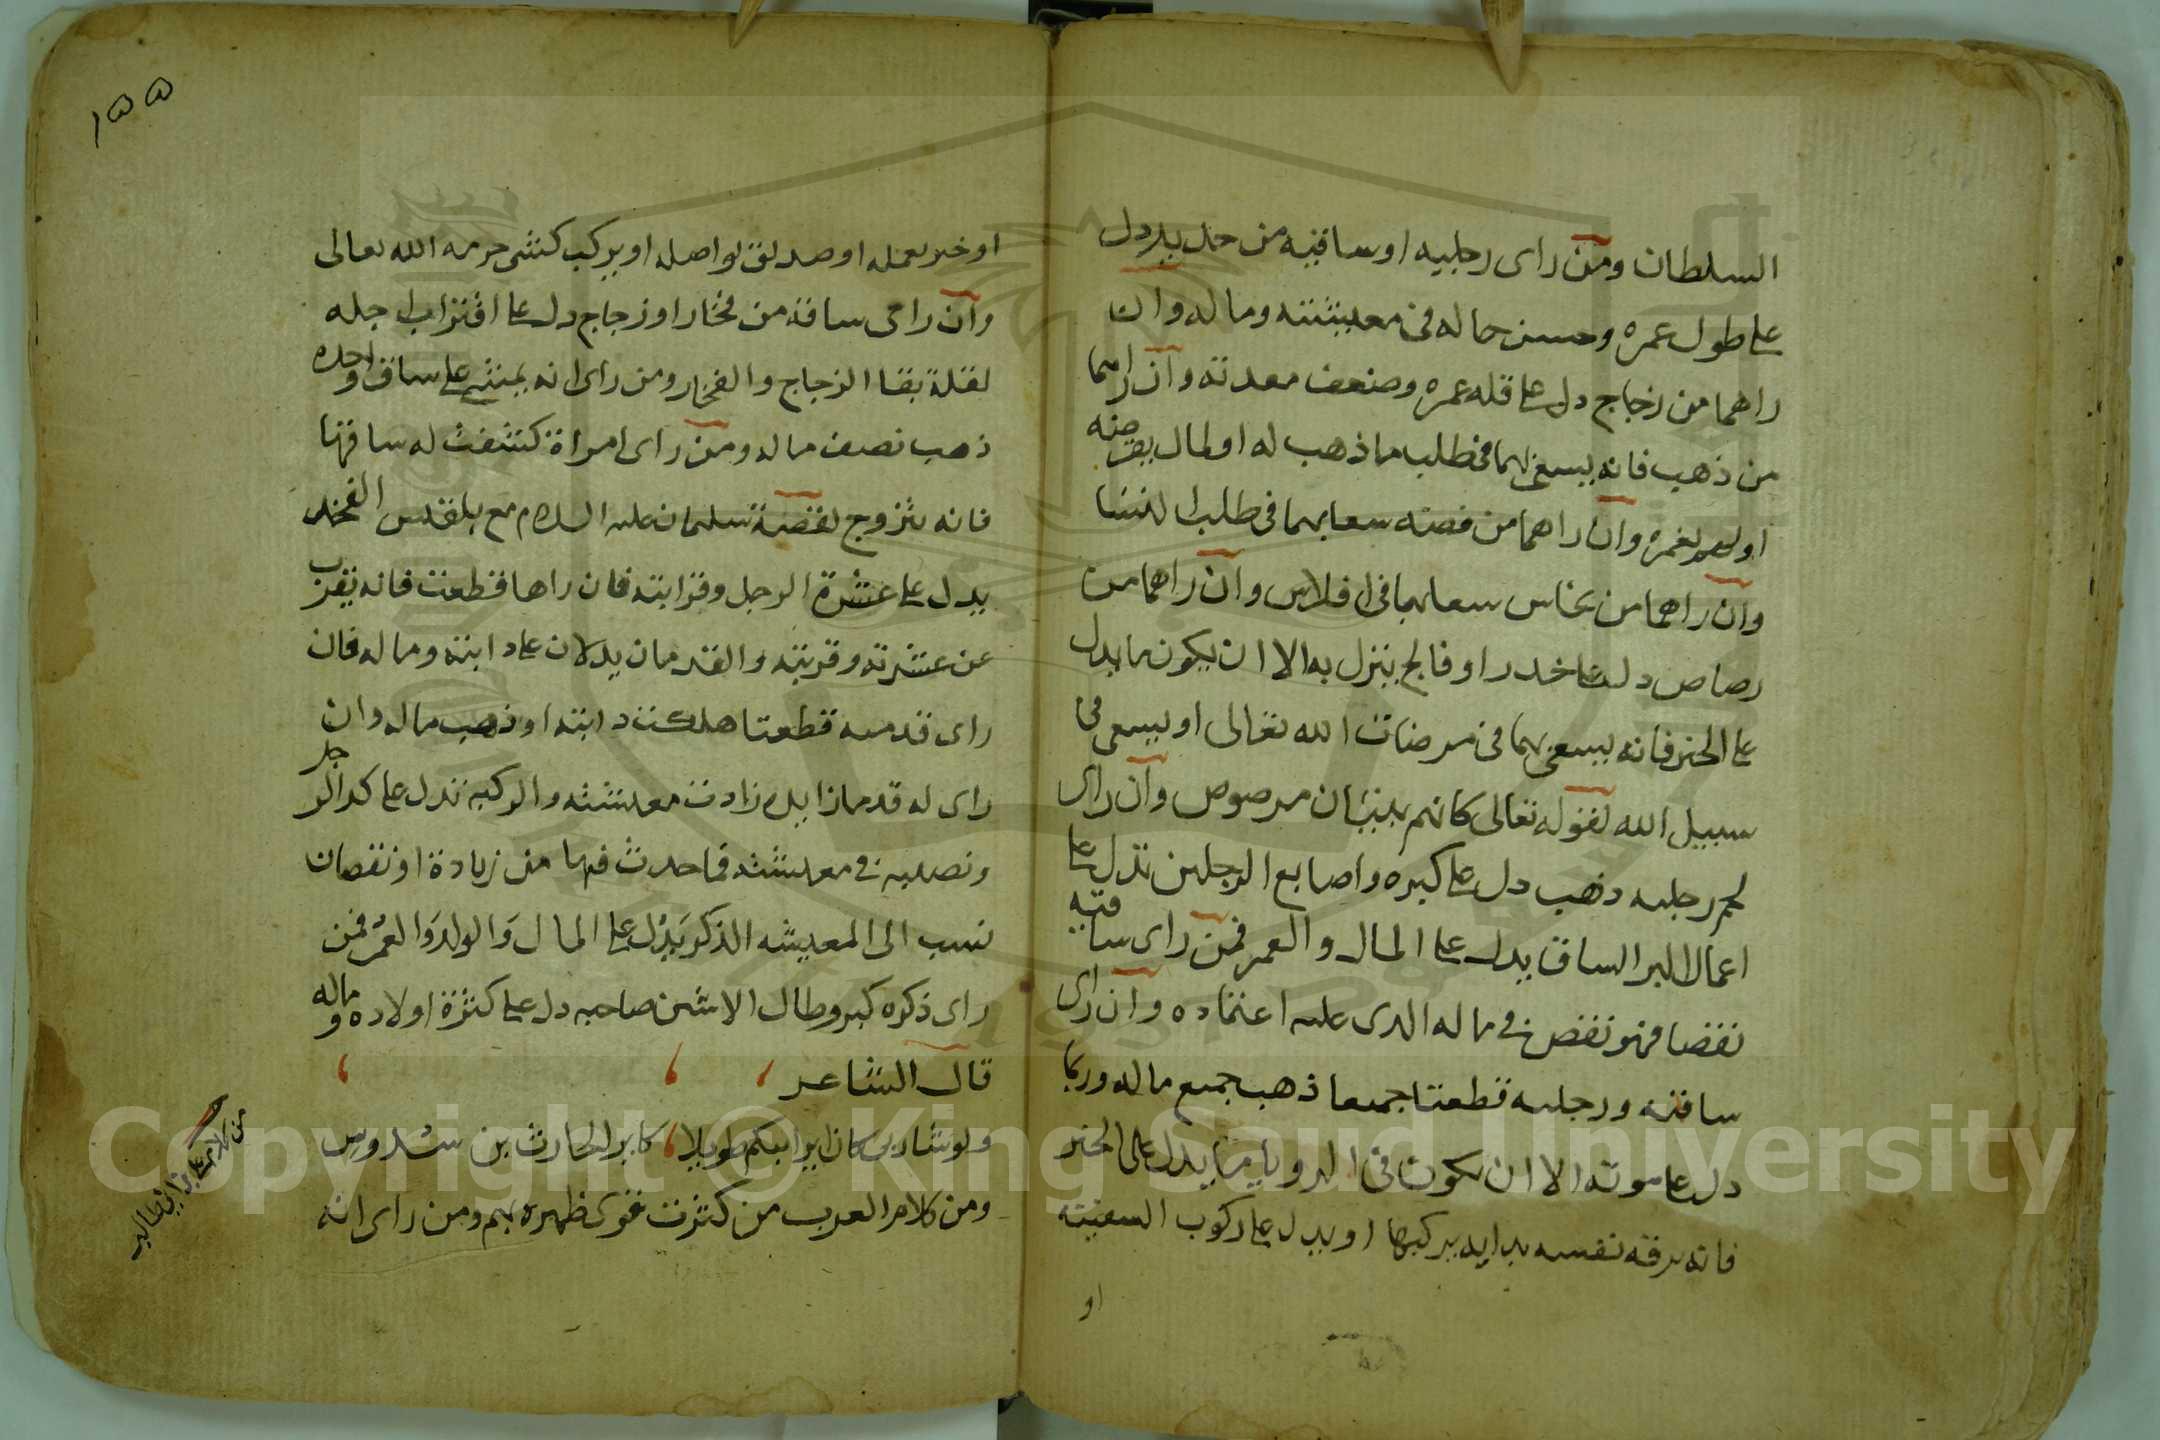 السلطان ومن راى رجليه او ساقيه من حديد دل
على طول عمره وحسن حاله فى معيشته وماله وان
راهما من زجاج دل على قله عمره وضعف معدته وان راهما
من ذهب فانه يسعى بهما فى طلب ما ذهب له او طال بمرضه
او لعمر لغمره وان راهما من فضه سعا بهما فى طلب النسا
وان راهما من نحاس سعا بهما فى افلاس وان راهما من
رصاص دل على خدر او فالج ينزل به الا ان يكون ما يدل
على الخير فانه يسعى بهما فى مرضات الله تعالى او يسعى فى
سبيل الله لقوله تعالى كانهم بنيان مرصوص وان راى
لحم رجليه ذهب دل على كبره واصابع الرجلين تدل على
اعمال البر الساق يدل على المال والعمر فمن راى ساقيه
نقصا فهو نقص فى ماله الدى عليه اعتماده وان راى
ساقيه ورجليه قطعتا جميعا ذهب جميع ماله وربما
دل على موته الا ان يكون فى الرويا ما يدل على الخير
فانه يرفه نفسه بدابه يركبها او يدل على ركوب السفينه
او
١٥٥
او خير يعمله او صديق يواصله او يركب كنشى حرمه الله تعالى
وان راى ساقه من فخار او زجاج دل على اقتراب اجله
لقلة بقا الزجاج والفخار ومن راى انه يمشي على ساق واحده
ذهب نصف ماله ومن راى امراة كشفت له ساقها
فانه يتزوج لقصة سليمان عليه السلام مع بلقيس الفخد
يدل على عشرة الرجل وقرابته فان راها قطعت فانه يقرب
عن عشرته وقريته والقدمان يدلان على دابته وماله فان
راى قدميه قطعتا هلكت دابته او ذهب ماله وان
راى له قدما زايده زادت معيشته والركبه تدل على كد الرجل
ونصيبه في معيشته فما حدث فيها من زيادة او نقصان
نسب الى المعيشه الذكر يدل على المال والولد والعمر فمن
راى ذكره كبر وطال الانثيين صاحبه دل على كثرة اولاده وماله
قال الشاعر
ولو شا ربى كان اير ابيكم طويلا كاير الحارث بن سدوس
ومن كلام العرب من كثرت قوى ظهره بهم ومن راى انه
من كلام علي بن ابي طالب
Copyright © King Saud University